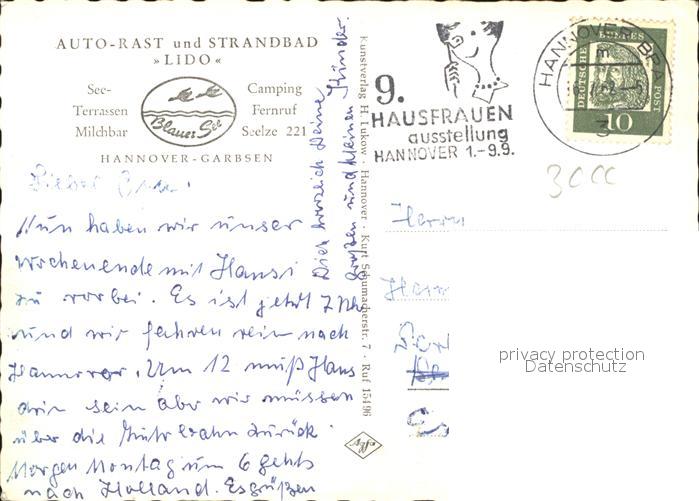 AUTO-RAST und STRANDBAD
»LIDO«
See-
Terrassen
Milchbar
Blauer See
Camping
Fernruf
Seelze 221
HANNOVER-GARBSEN
9.
HAUSFRAUEN
ausstellung
HANNOVER 1.-9.9.
HANNOVER
DEUTSCHE BUNDESPOST
10
3000
Lieber
Nun haben wir unser
Wochenende mit Hansi
zu vorbei. Es ist jetzt 7 Uhr
und wir fahren rein nach
Hannover. Um 12 muß Hans
drin sein aber wir müssen
über die Autobahn zurück.
Morgen Montag um 6 gehts
nach Holland. Es grüßen
Dich herzlich Deine
großen und kleinen Kinder.
Kunstverlag H. Lukow, Hannover · Kurt Schumacherstr. 7 · Ruf 15496
Herrn
privacy protection
Datenschutz